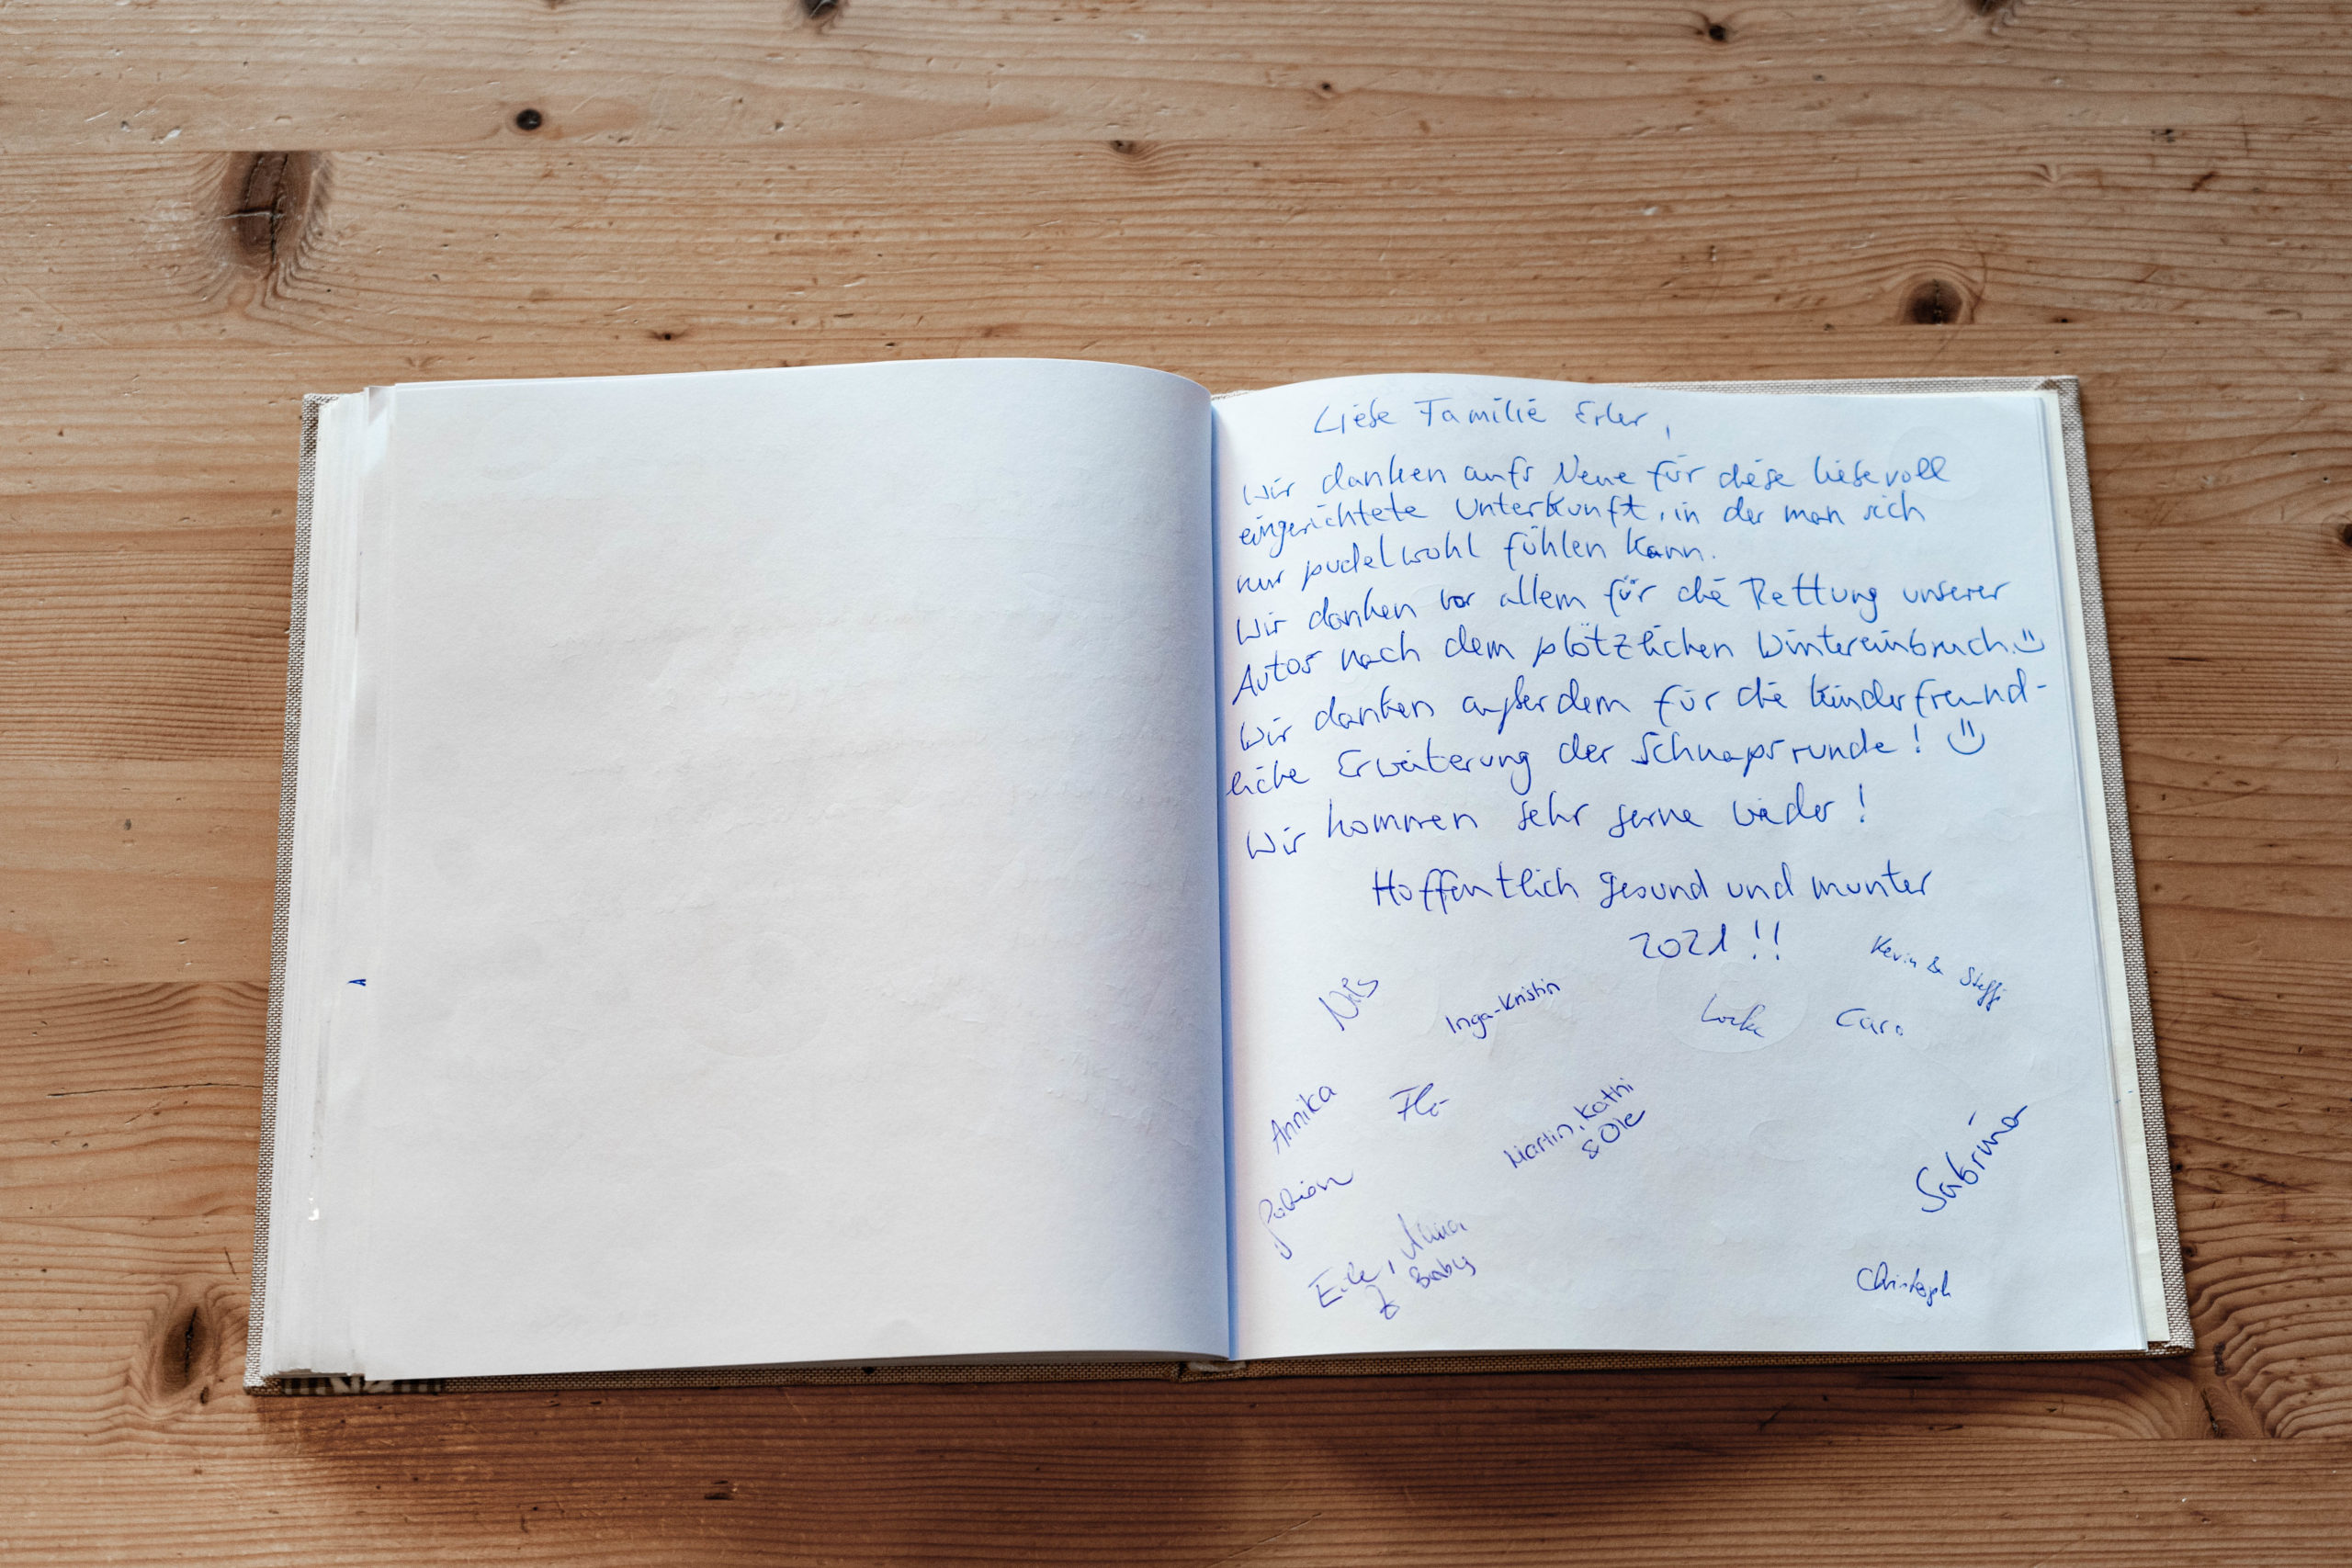 Liebe Familie Erler,
Wir danken aufs Neue für diese liebevoll
eingerichtete Unterkunft, in der man sich
nur pudelwohl fühlen kann.
Wir danken vor allem für die Rettung unserer
Autos nach dem plötzlichen Wintereinbruch.
Wir danken außerdem für die kinderfreund-
liche Erweiterung der Schnapsrunde!
Wir kommen sehr gerne wieder!
Hoffentlich gesund und munter
2021!!
Kevin & Steffi
Nils
Inga-Kristin
Caro
Annika
Flo
Martin, Kathi
& Ole
Fabian
Sabrina
Anna
Baby
Christoph